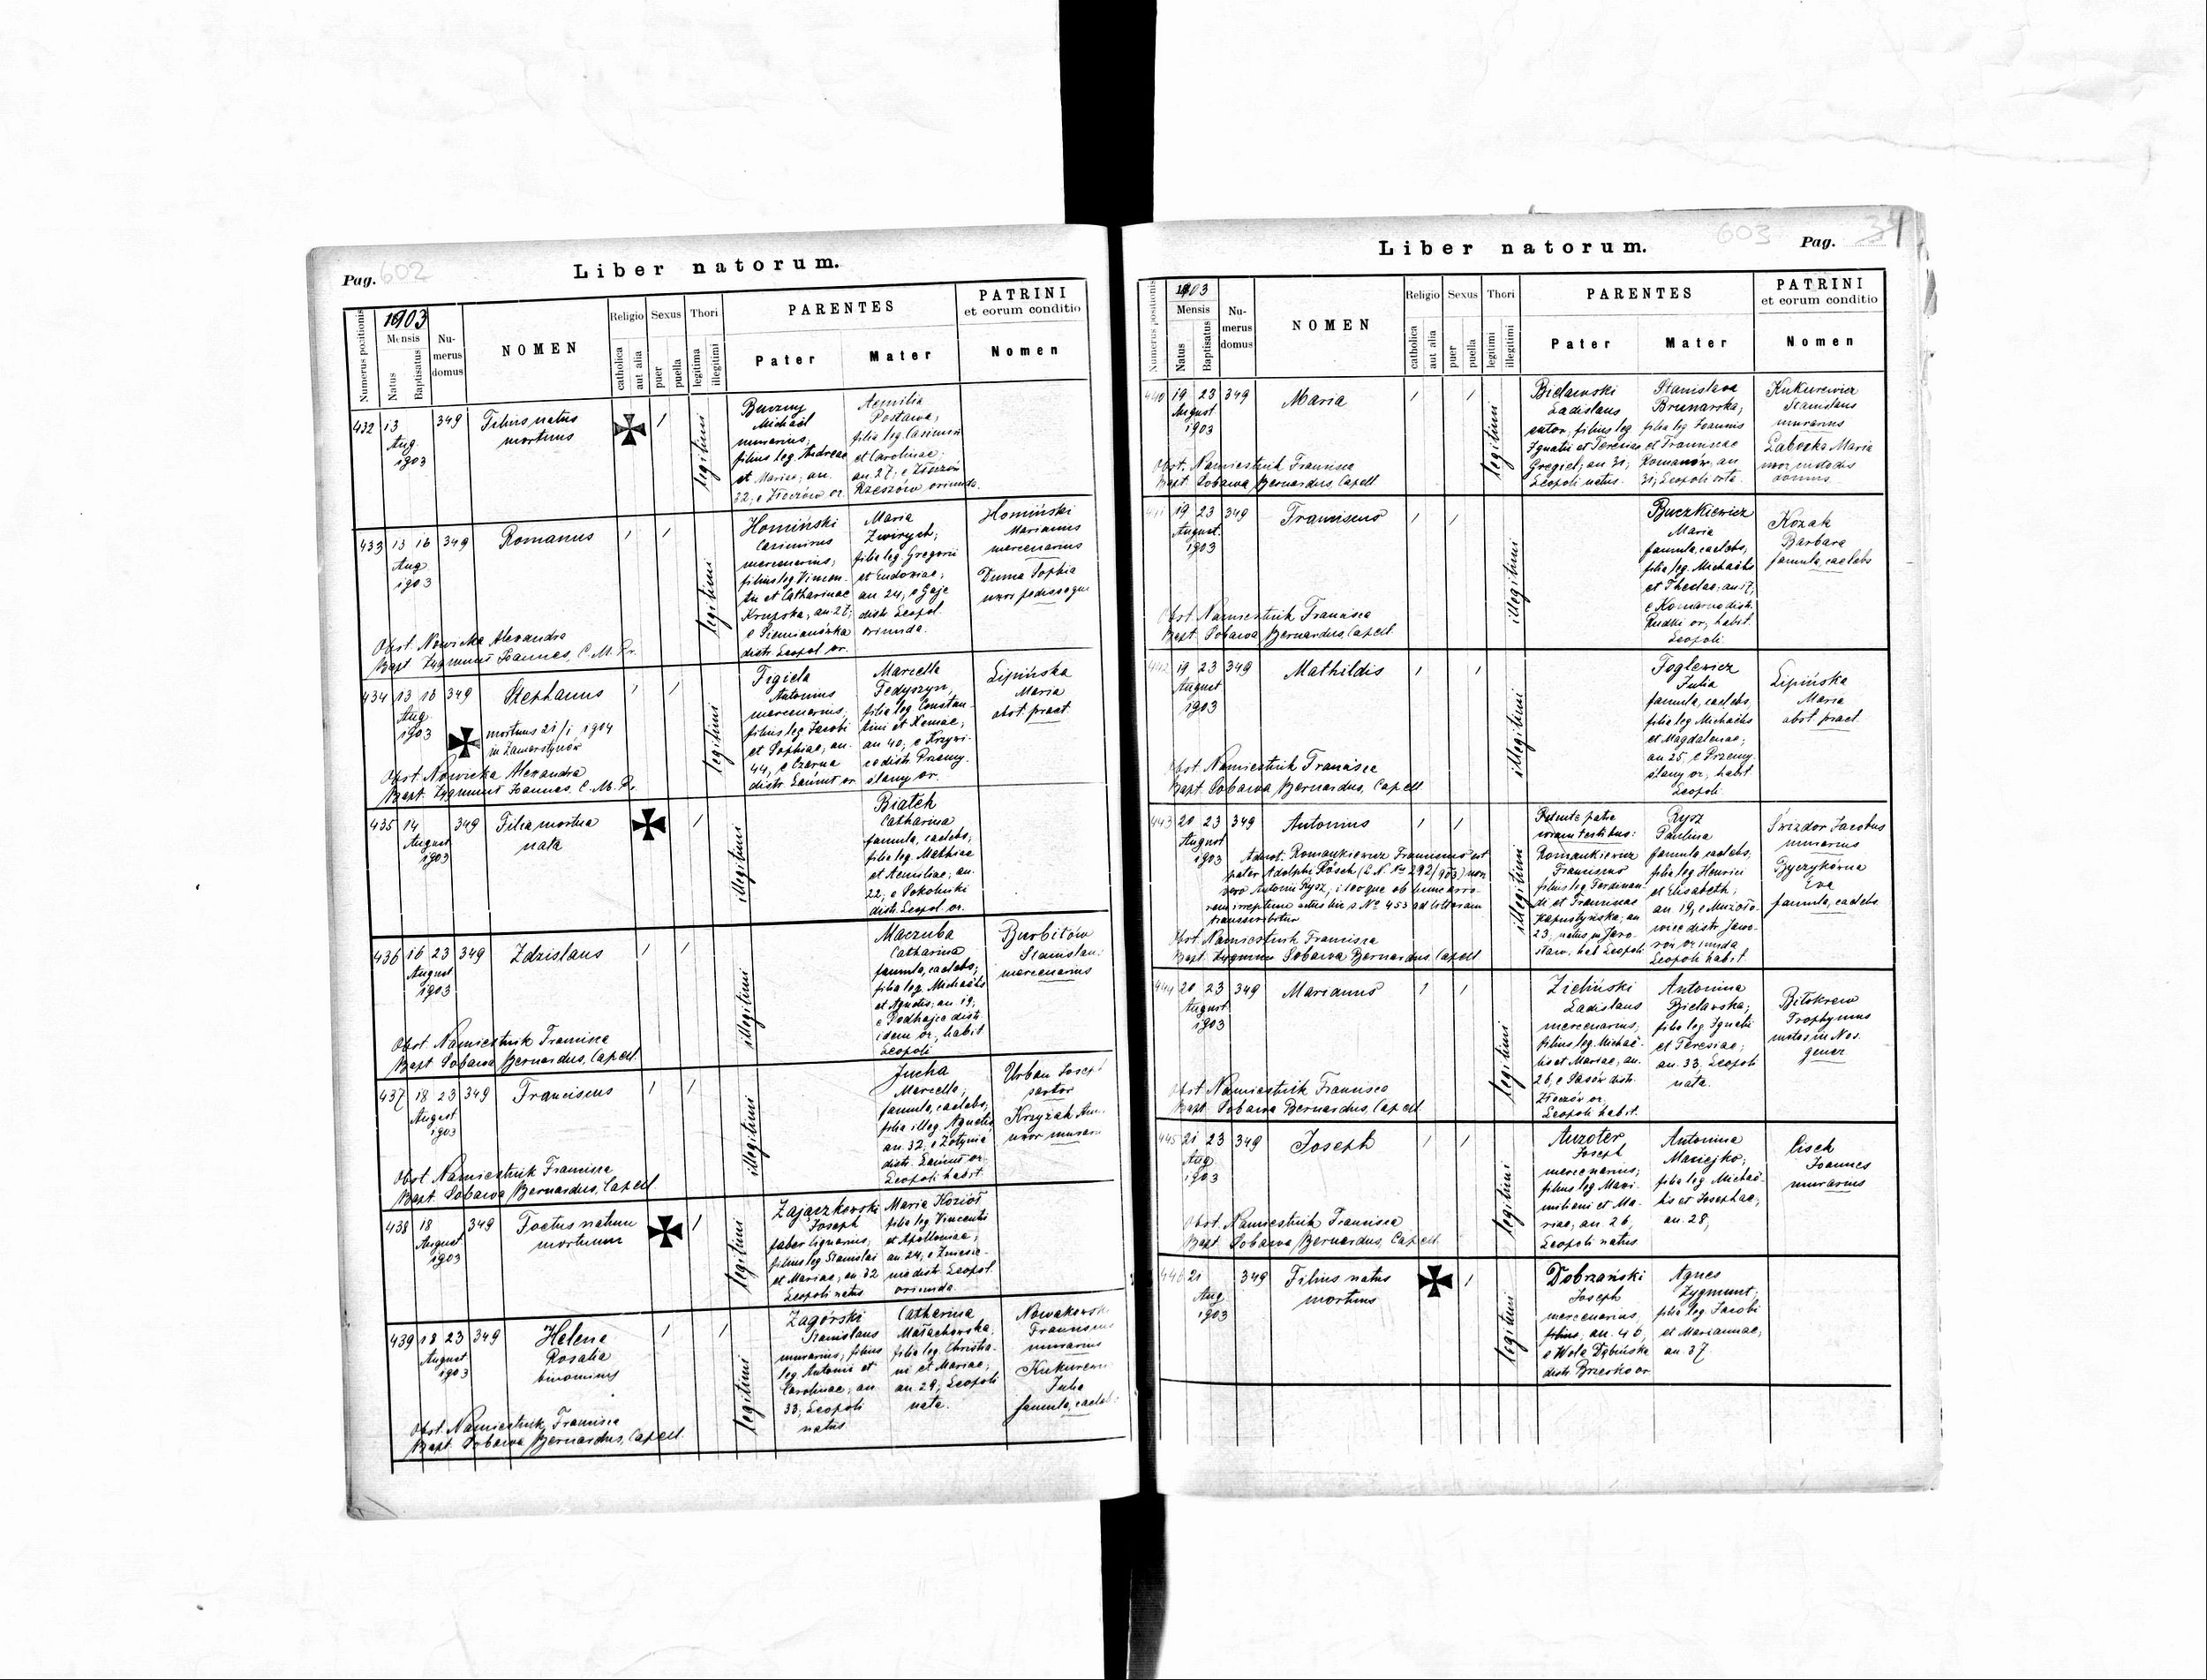 Pag. 602
Liber natorum.
Numerus positionis
1903
Mensis
Natus
Baptisatus
Nu-
merus
domus
NOMEN
Religio
catholica
aut alia
Sexus
puer
puella
Thori
legitima
illegitimi
PARENTES
Pater
Mater
PATRINI
et eorum conditio
Nomen
432 13 349
Aug.
1903
Filius natus
mortuus
legitimi
Michaël
murarius;
filius leg. Andreae
et Mariae; an.
32; e Złoczów or.
Aemilia
Postawa;
filia leg. Casimiri
et Carolinae;
an. 27; e Złoczów
Rzeszów oriunda.
433 13 16 349
Aug
1903
Romanus
legitimi
Homiński
Casimirus
mercenarius;
filius leg Vincen-
tii et Catharinae
Krupska, an. 27;
e Siemianówka
distr. Leopol. or.
Maria
Zwirych;
filia leg Gregorii
et Eudoxiae;
an 24; e Gaje
distr Leopol.
oriunda.
Homiński
Marianus
mercenarius
Duma Sophia
uxor
Obst. Nowicka Alexandra
Bapt Zygmunt Joannes, C. M. Pr.
434 13 16 349
Aug.
1903
Stephanus
mortuus 21/1 1904
in Zamarstynów
legitimi
Figiela
Antonius
mercenarius;
filius leg Jacobi
et Sophiae; an.
44; e Czarna
distr. Łańcut or
Marcella
Fedyszyn,
filia leg Constan-
tini et Xeniae;
an 40; e Krzywi-
ce distr Przemy-
ślany or.
Lipińska
Maria
obst. pract.
Obst. Nowicka Alexandra
Bapt. Zygmunt Joannes, C. M. Pr.
435 14 349
August
1903
Filia mortua
nata
illegitimi
Białek
Catharina
famula, caelebs;
filia leg. Mathiae
et Aemiliae; an.
22; e Sokolniki
distr. Leopol. or.
436 16 23 349
August
1903
Zdzislaus
illegitimi
Maczuba
Catharina
famula, caelebs;
filia leg Michaëlis
et Agnetis; an 19;
e Podhajce distr.
idem or; habit
Leopoli
Burbitów
Stanislaus
mercenarius
Obst Namiestnik Francisca
Bapt Sobawa Bernardus, Capell.
437 18 23 349
August
1903
Franciscus
illegitimi
Jucha
Marcella;
famula, caelebs;
filia illeg. Agnetis
an. 32, e Żołynia
distr. Łańcut or.
Leopoli habit.
Urban Joseph
sartor
Krzyżak
uxor
Obst Namiestnik Francisca
Bapt. Sobawa Bernardus, Capell
438 18 349
August
1903
Foetus natum
mortuum
legitimi
Zajączkowski
Joseph
faber lignarius;
filius leg Stanislai
et Mariae; an 32
Leopoli natus
Maria Kozioł
filia leg Vincentii
et Apolloniae;
an. 24, e Zniesie-
nie distr. Leopol.
oriunda.
439 18 23 349
August
1903
Helena
Rosalia
binominis
legitimi
Zagórski
Stanislaus
murarius; filius
leg. Antonii et
Carolinae; an
33; Leopoli
natus
Catharina
Małachowska,
filia leg. Christia-
ni et Mariae;
an. 29; Leopoli
nata.
Franciscus
murarius
Julia
famula,
Obst. Namiestnik Francisca
Bapt. Sobawa Bernardus, Capell.
Liber natorum.
603
Pag. 34
Numerus positionis
1903
Mensis
Natus
Baptisatus
Nu-
merus
domus
NOMEN
Religio
catholica
aut alia
Sexus
puer
puella
Thori
legitimi
illegitimi
PARENTES
Pater
Mater
PATRINI
et eorum conditio
Nomen
440 19 23 349
August
1903
Maria
legitimi
Bielawski
Ladislaus
sutor; filius leg
Ignatii et Teresiae
Gregiel; an 31;
Leopoli natus.
Stanislava
Brunarska;
filia leg Joannis
et Franciscae
Romanów; an
31; Leopoli orta.
Kukurewicz
Stanislaus
murarius
Maria
uxor custodis
domus
Obst. Namiestnik Francisca
Bapt Sobawa Bernardus, Capell
441 19 23 349
August.
1903
Franciscus
illegitimi
Buczkiewicz
Maria
famula, caelebs;
filia leg. Michaëlis
et Theclae; an 17;
e Komarno distr.
Rudki or; habit
Leopoli
Kozak
Barbara
famula, caelebs
Obst. Namiestnik Francisca
Bapt. Sobawa Bernardus, Capell.
442 19 23 349
August
1903
Mathildis
illegitimi
Foglewicz
Julia
famula, caelebs,
filia leg Michaëlis
et Magdalenae;
an 25, e Przemy-
ślany or; habit
Leopoli
Lipińska
Maria
obst. pract.
Obst. Namiestnik Francisca
Bapt. Sobawa Bernardus, Capell
443 20 23 349
August
1903
Antonius
Adnot. Romankiewicz Franciscus est
pater Adolphi Rösch (L. N. No 292/903) non
vero Antonii Rysz;
transcribitur
illegitimi
Petente patre
coram testibus:
Romankiewicz
Franciscus
filius leg Ferdinan-
di et Franciscae
Kapustyńska; an
23; natus in Jaro-
sław. hab Leopoli
Rysz
Paulina
famula, caelebs,
filia leg Henrici
et Elisabeth;
an. 19, e Mużyło-
wice distr. Jawo-
rów oriunda
Leopoli habit
Świzdor Jacobus
murarius
Eva
famula, caelebs
Obst Namiestnik Francisca
Bapt. Zygmunt Sobawa Bernardus Capell
444 20 23 349
August
1903
Marianus
legitimi
Zieliński
Ladislaus
mercenarius;
filius leg. Michaë-
lis et Mariae; an.
26, e Sasów distr.
Złoczów or;
Leopoli habit.
Antonina
Bielawska;
filia leg. Ignatii
et Teresiae;
an. 33, Leopoli
nata.
Biłokrew
Trophymus
custos in Nos.
gener.
Obst. Namiestnik Francisca
Bapt. Sobawa Bernardus, Capell
445 21 23 349
Aug
1903
Joseph
legitimi
Auzoter
Joseph
mercenarius;
filius leg Maxi-
miliani et Ma-
riae; an. 26,
Leopoli natus
Antonina
Maziejko;
filia leg Michaë-
lis et Josephae,
an. 28,
Cisek
Joannes
murarius
Obst. Namiestnik Francisca
Bapt Sobawa Bernardus, Capell.
446 21 349
Aug
1903
Filius natus
mortuus
legitimi
Dobrzański
Joseph
mercenarius,
filius, an. 46,
e Wola Dębińska
distr Brzesko or
Agnes
Zygmunt;
filia leg Jacobi
et Mariannae;
an. 37